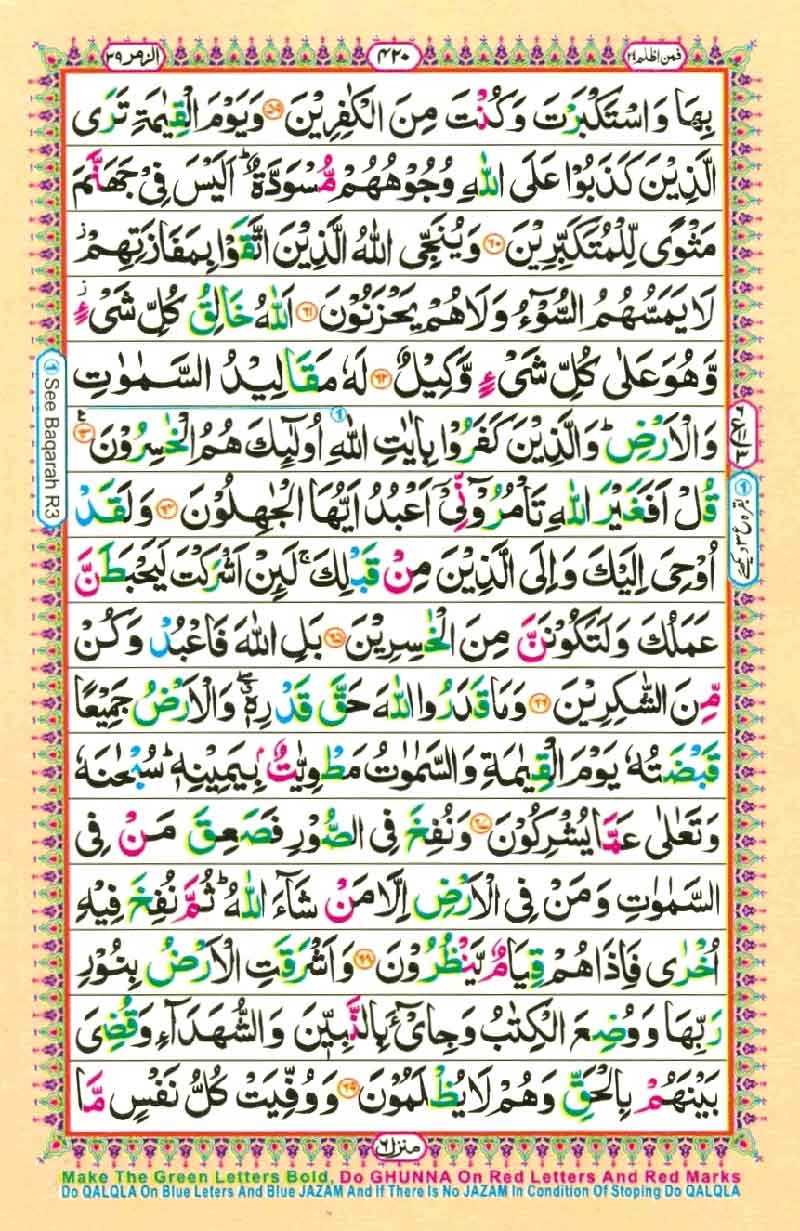 الزمر ۳۹ ۴۲۰ فمن اظلم ۲۴
بِهَا وَاسْتَكْبَرْتَ وَكُنْتَ مِنَ الْكٰفِرِيْنَ ۵۹ وَيَوْمَ الْقِيٰمَةِ تَرَى
الَّذِيْنَ كَذَبُوْا عَلَى اللّٰهِ وُجُوْهُهُمْ مُّسْوَدَّةٌ ؕ اَلَيْسَ فِىْ جَهَنَّمَ
مَثْوًى لِّلْمُتَكَبِّرِيْنَ ۶۰ وَيُنَجِّى اللّٰهُ الَّذِيْنَ اتَّقَوْا بِمَفَازَتِهِمْ ز
لَا يَمَسُّهُمُ السُّوْٓءُ وَلَا هُمْ يَحْزَنُوْنَ ۶۱ اَللّٰهُ خَالِقُ كُلِّ شَىْءٍ ز
وَّهُوَ عَلٰى كُلِّ شَىْءٍ وَّكِيْلٌ ۶۲ لَهٗ مَقَالِيْدُ السَّمٰوٰتِ
وَالْاَرْضِ ؕ وَالَّذِيْنَ كَفَرُوْا بِاٰيٰتِ اللّٰهِ اُولٰٓئِكَ هُمُ الْخٰسِرُوْنَ ۶۳
قُلْ اَفَغَيْرَ اللّٰهِ تَاْمُرُوْٓنِّىْٓ اَعْبُدُ اَيُّهَا الْجٰهِلُوْنَ ۶۴ وَلَقَدْ
اُوْحِىَ اِلَيْكَ وَاِلَى الَّذِيْنَ مِنْ قَبْلِكَ ۚ لَئِنْ اَشْرَكْتَ لَيَحْبَطَنَّ
عَمَلُكَ وَلَتَكُوْنَنَّ مِنَ الْخٰسِرِيْنَ ۶۵ بَلِ اللّٰهَ فَاعْبُدْ وَكُنْ
مِّنَ الشّٰكِرِيْنَ ۶۶ وَمَا قَدَرُوا اللّٰهَ حَقَّ قَدْرِهٖ ۖ وَالْاَرْضُ جَمِيْعًا
قَبْضَتُهٗ يَوْمَ الْقِيٰمَةِ وَالسَّمٰوٰتُ مَطْوِيّٰتٌۢ بِيَمِيْنِهٖ ؕ سُبْحٰنَهٗ
وَتَعٰلٰى عَمَّا يُشْرِكُوْنَ ۶۷ وَنُفِخَ فِى الصُّوْرِ فَصَعِقَ مَنْ فِى
السَّمٰوٰتِ وَمَنْ فِى الْاَرْضِ اِلَّا مَنْ شَآءَ اللّٰهُ ؕ ثُمَّ نُفِخَ فِيْهِ
اُخْرٰى فَاِذَا هُمْ قِيَامٌ يَّنْظُرُوْنَ ۶۸ وَاَشْرَقَتِ الْاَرْضُ بِنُوْرِ
رَبِّهَا وَوُضِعَ الْكِتٰبُ وَجِاىْٓءَ بِالنَّبِيّٖنَ وَالشُّهَدَآءِ وَقُضِىَ
بَيْنَهُمْ بِالْحَقِّ وَهُمْ لَا يُظْلَمُوْنَ ۶۹ وَوُفِّيَتْ كُلُّ نَفْسٍ مَّا
See Baqarah R3
منزل ۶
Make The Green Letters Bold, Do GHUNNA On Red Letters And Red Marks
Do QALQLA On Blue Leters And Blue JAZAM And If There Is No JAZAM In Condition Of Stoping Do QALQLA